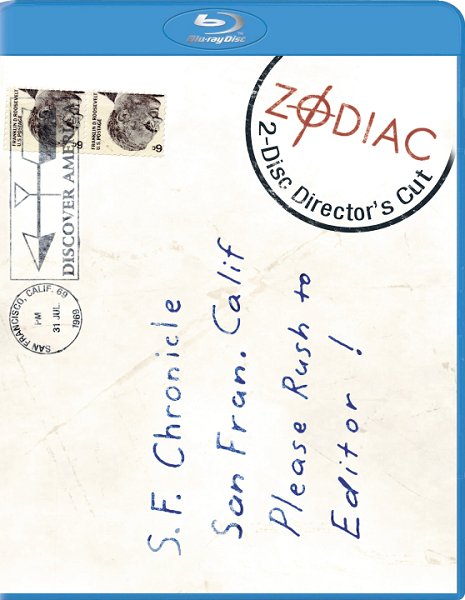 Blu-ray Disc
ZODIAC
2-Disc Director's Cut
FRANKLIN D. ROOSEVELT
U.S. POSTAGE
6¢
FRANKLIN D. ROOSEVELT
U.S. POSTAGE
6¢
DISCOVER AMERICA
SAN FRANCISCO, CALIF. 69
PM
31 JUL
1969
S.F. Chronicle
San Fran. Calif
Please Rush to
Editor!